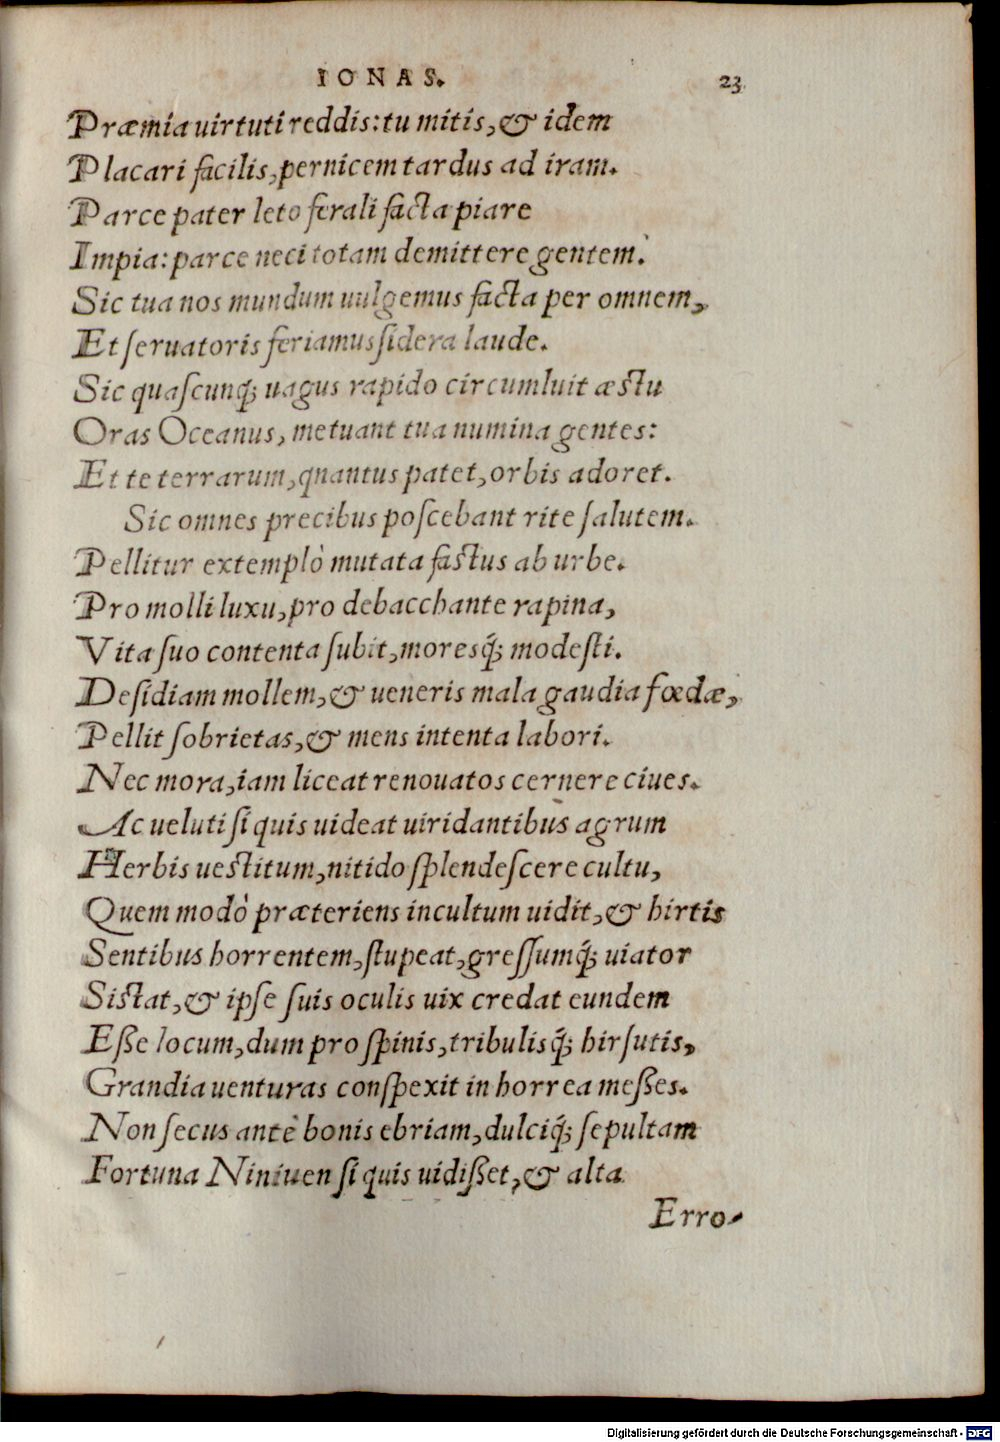 IONAS. 23
Præmia uirtuti reddis: tu mitis, & idem
Placari facilis, pernicem tardus ad iram.
Parce pater leto ferali facta piare
Impia: parce neci totam demittere gentem.
Sic tua nos mundum uulgemus facta per omnem,
Et ſeruatoris feriamus ſidera laude.
Sic quaſcunq; uagus rapido circumluit æſtu
Oras Oceanus, metuant tua numina gentes:
Et te terrarum, quantus patet, orbis adoret.
Sic omnes precibus poſcebant rite ſalutem.
Pellitur extemplò mutata faſtus ab urbe.
Pro molli luxu, pro debacchante rapina,
Vita ſuo contenta ſubit, moresq́; modeſti.
Deſidiam mollem, & ueneris mala gaudia fœdæ,
Pellit ſobrietas, & mens intenta labori.
Nec mora, iam liceat renouatos cernere ciues.
Ac ueluti ſi quis uideat uiridantibus agrum
Herbis ueſtitum, nitido ſplendeſcere cultu,
Quem modò præteriens incultum uidit, & hirtis
Sentibus horrentem, ſtupeat, greſſumq́; uiator
Siſtat, & ipſe ſuis oculis uix credat eundem
Eſſe locum, dum pro ſpinis, tribulisq́; hirſutis,
Grandia uenturas conſpexit in horrea meſſes.
Non ſecus antè bonis ebriam, dulciq́; ſepultam
Fortuna Niniuen ſi quis uidiſſet, & alta
Erro-
Digitalisierung gefördert durch die Deutsche Forschungsgemeinschaft - DFG